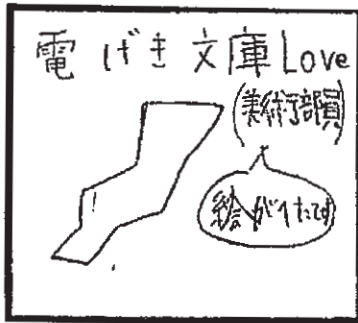 電げき文庫Love
(美術部員)
絵がへたです